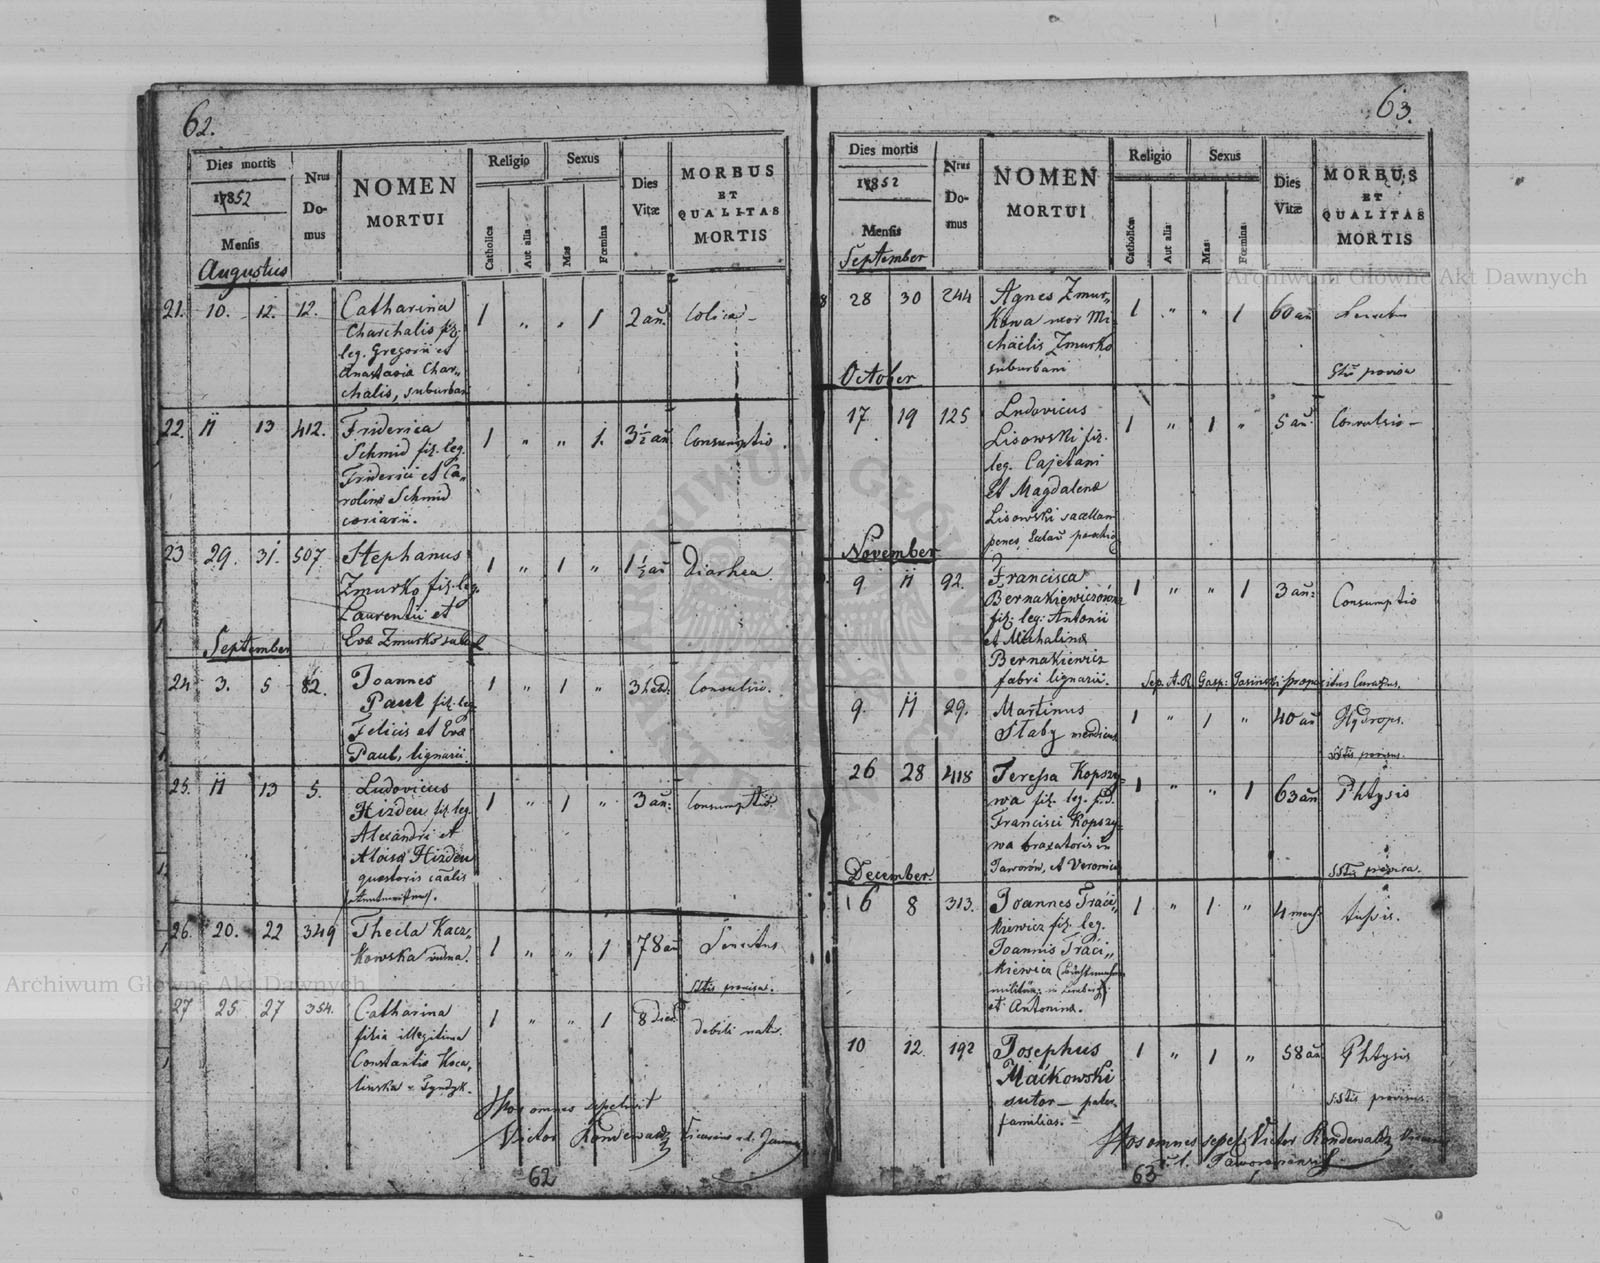 62.
Dies mortis
1852
Mensis
Nrus Domus
NOMEN
MORTUI
Religio
Catholica
Aut alia
Sexus
Mas
Fœmina
Dies Vitæ
MORBUS
ET
QUALITAS
MORTIS
Augustus
21. 10. 12. 12. Catharina 1 " " 1 2 an. Colica
Charchalis fil.
leg. Gregorii et
Anastasia Char„
chalis, suburbani
22. 11 13 412. Friderica 1 " " 1. 3½ an. Consumptio.
Schmid fil. leg.
Friderici et Ca„
rolina Schmid
coriarii.
23 29. 31. 507. Stephanus 1 " 1 " 1½ an Diarhea.
Zmurko fil. leg.
Laurentii et
Eva Zmurko
September
24 3. 5 82. Joannes 1 " 1 " 3
Paul fil. leg.
Felicis et Eva
Paul, lignarii.
25. 11 13 5. Ludovicus 1 " 1 " 3 an. Consumptio.
Hizdeu fil. leg.
Alexandri et
Aloisa Hizdeu
quæstoris
26. 20. 22 349 Thecla Kacz„ 1 " " 1 78 an Senectus
kowska vidua.
SStis provisa.
27 25 27 354. Catharina 1 " " 1 8 dies debili
filia illegitima
Constantia Koca„
linska
Hos omnes sepelivit
Victor
62
63.
Dies mortis
1852
Mensis
Nrus Domus
NOMEN
MORTUI
Religio
Catholica
Aut alia
Sexus
Mas
Fœmina
Dies Vitæ
MORBUS
ET
QUALITAS
MORTIS
September
28 30 244 Agnes Zmur„ 1 " " 1 60 an
kowa uxor Mi
chaëlis Zmurko
suburbani
provisa
October
17. 19 125 Ludovicus 1 " 1 " 5 an. Convulsio
Lisowski fil.
leg. Cajetani
et Magdalena
Lisowski
penes
November
9 11 92. Francisca 1 " " 1 3 an: Consumptio
Bernakiewiczówna
fil: leg: Antonii
et Michalina
Bernakiewicz
fabri lignarii.
Sep. A.R. Gasp:
9. 11 29. Martinus 1 " 1 " 40 an Hydrops.
Słaby mendicus
SStis provisus.
26 28 418 Teressa Kopszy= 1 " " 1 63 an Phtysis
wa fil. leg.
Francisci Kopszy=
wa braxatoris in
Jaworów, et Veronica
SStis provisa.
December
6 8 313. Joannes Traci„ 1 " 1. " 4 mens. tussis.
kiewicz fil. leg.
Joannis Traci„
kiewicz
et Antonina.
10 12. 192 Josephus 1 " 1 " 58 an Phtysis
Maćkowski
sutor – pater
familias.
SStis provisus.
Hos omnes sepel: Victor
63
Archiwum Główne Akt Dawnych
Archiwum Główne Akt Dawnych